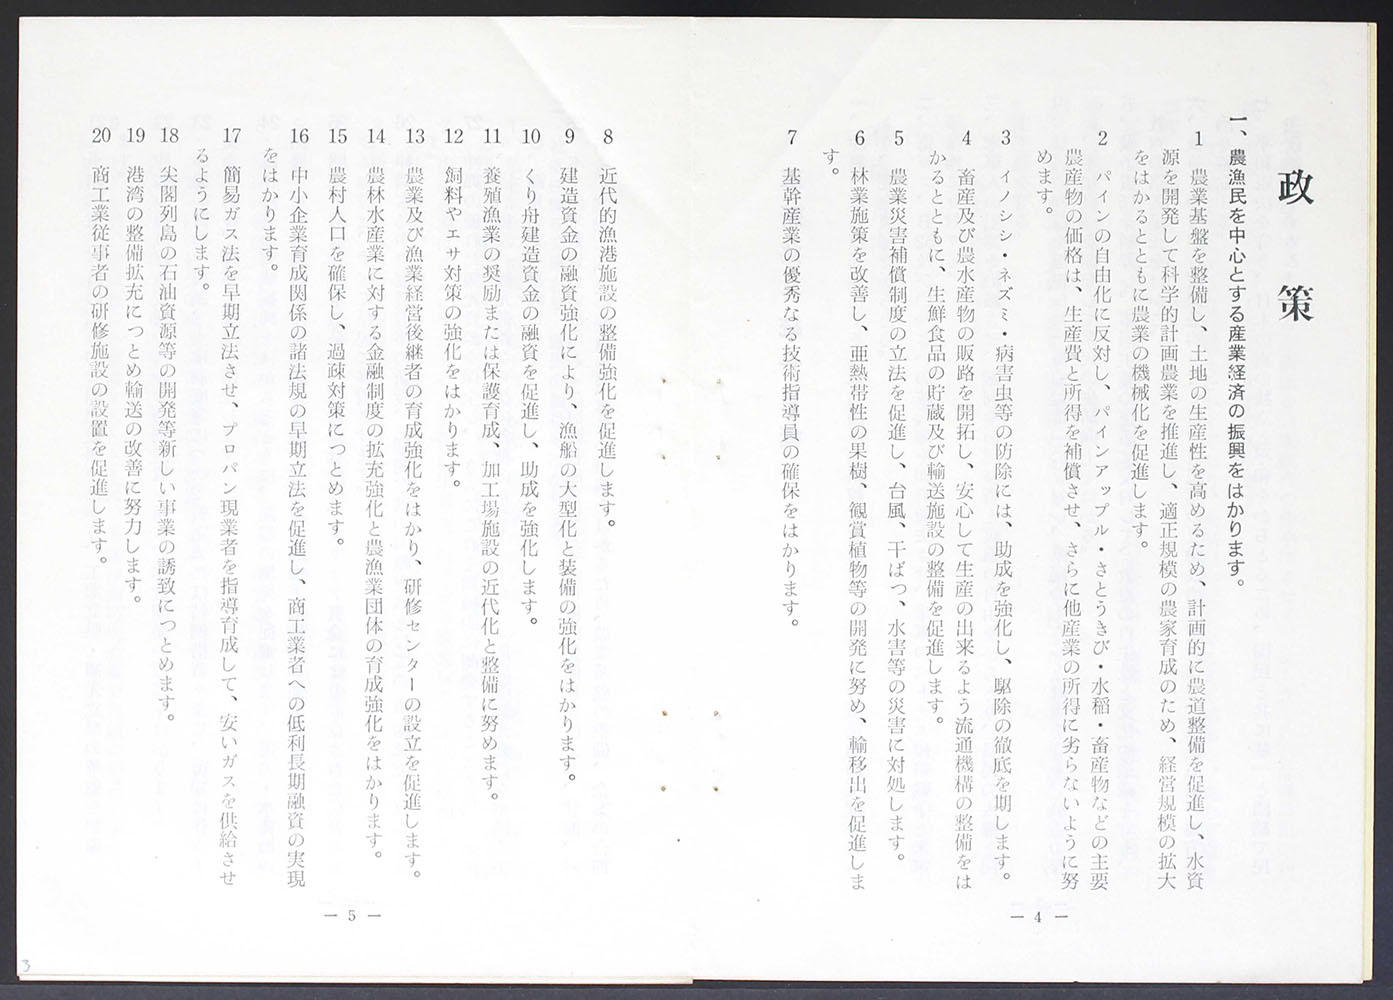 政策
一、農漁民を中心とする産業経済の振興をはかります。
1 農業基盤を整備し、土地の生産性を高めるため、計画的に農道整備を促進し、水資
源を開発して科学的計画農業を推進し、適正規模の農家育成のため、経営規模の拡大
をはかるとともに農業の機械化を促進します。
2 パインの自由化に反対し、パインアップル・さとうきび・水稲・畜産物などの主要
農産物の価格は、生産費と所得を補償させ、さらに他産業の所得に劣らないように努
めます。
3 イノシシ・ネズミ・病害虫等の防除には、助成を強化し、駆除の徹底を期します。
4 畜産及び農水産物の販路を開拓し、安心して生産の出来るよう流通機構の整備をは
かるとともに、生鮮食品の貯蔵及び輸送施設の整備を促進します。
5 農業災害補償制度の立法を促進し、台風、干ばつ、水害等の災害に対処します。
6 林業施策を改善し、亜熱帯性の果樹、観賞植物等の開発に努め、輸移出を促進しま
す。
7 基幹産業の優秀なる技術指導員の確保をはかります。
— 4 —
8 近代的漁港施設の整備強化を促進します。
9 建造資金の融資強化により、漁船の大型化と装備の強化をはかります。
10 くり舟建造資金の融資を促進し、助成を強化します。
11 養殖漁業の奨励または保護育成、加工場施設の近代化と整備に努めます。
12 飼料やエサ対策の強化をはかります。
13 農業及び漁業経営後継者の育成強化をはかり、研修センターの設立を促進します。
14 農林水産業に対する金融制度の拡充強化と農漁業団体の育成強化をはかります。
15 農村人口を確保し、過疎対策につとめます。
16 中小企業育成関係の諸法規の早期立法を促進し、商工業者への低利長期融資の実現
をはかります。
17 簡易ガス法を早期立法させ、プロパン現業者を指導育成して、安いガスを供給させ
るようにします。
18 尖閣列島の石油資源等の開発等新しい事業の誘致につとめます。
19 港湾の整備拡充につとめ輸送の改善に努力します。
20 商工業従事者の研修施設の設置を促進します。
— 5 —
3